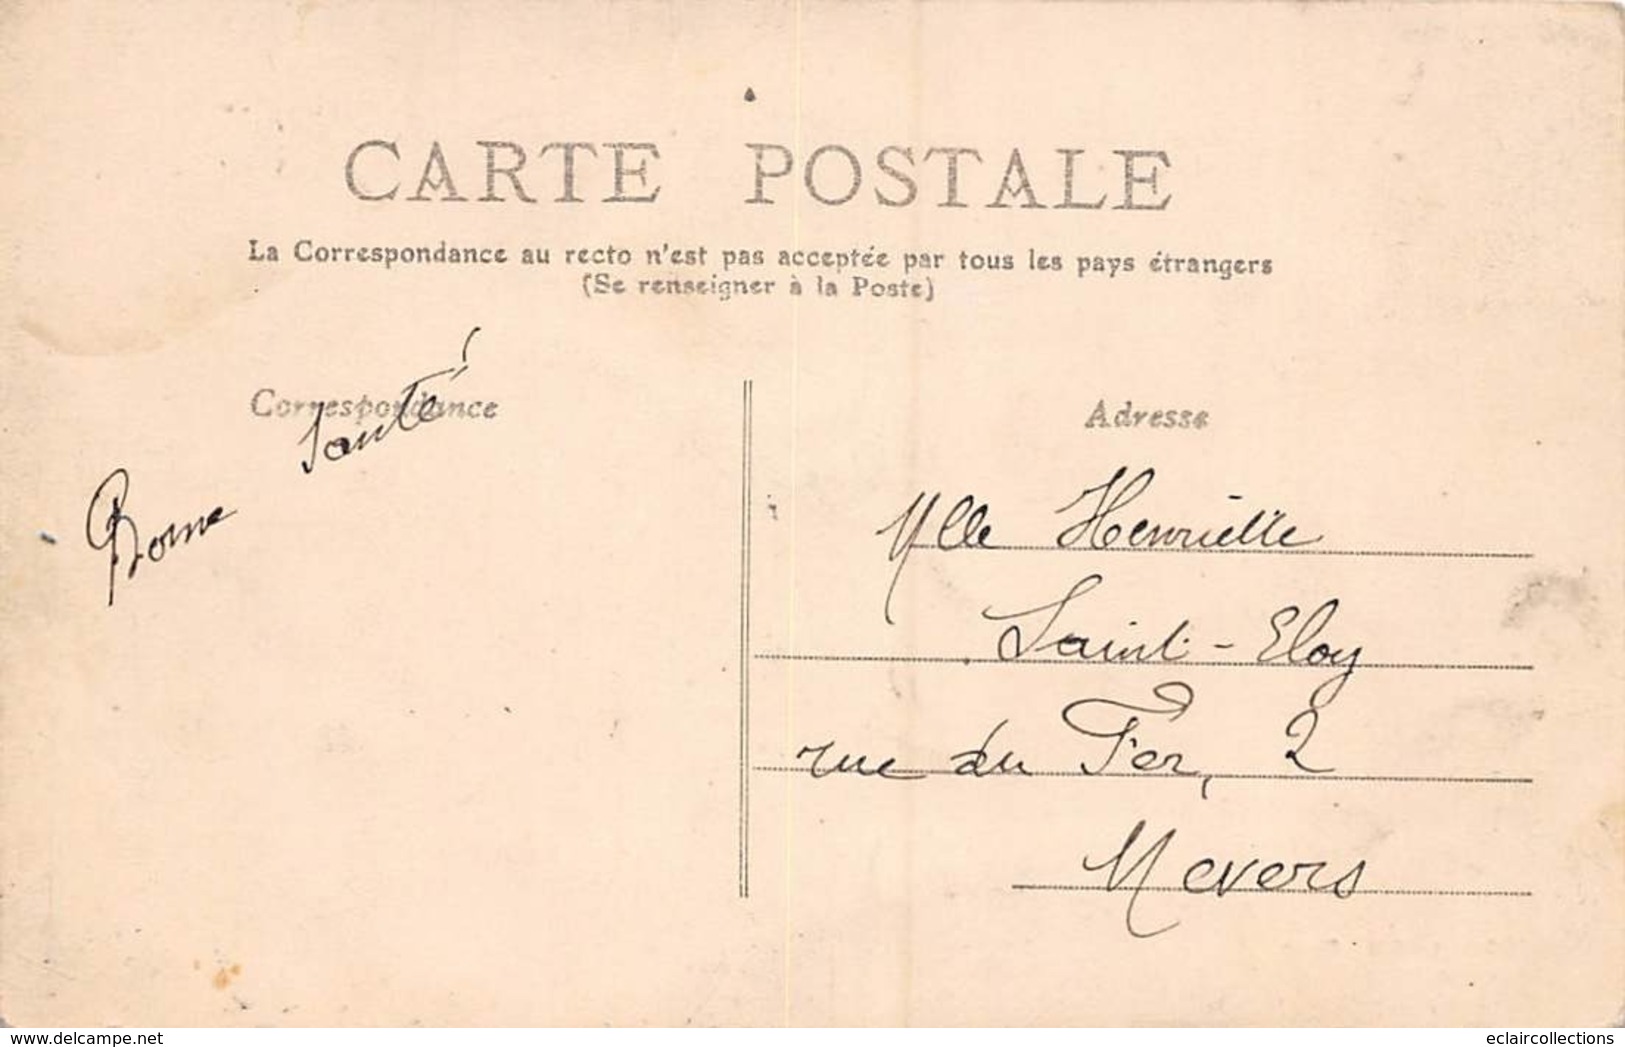 CARTE POSTALE
La Correspondance au recto n'est pas acceptée par tous les pays étrangers
(Se renseigner à la Poste)
Correspondance
Bonne Santé!
Adresse
Mlle Henriette
Saint-Eloy
rue du Fer, 2
Nevers
www.delcampe.net
eclaircollections